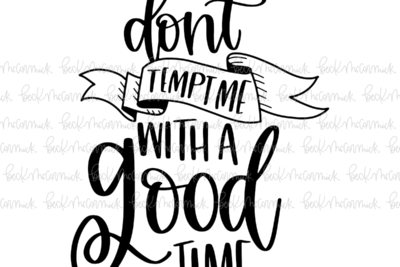 dont
TEMPT ME
WITH A
good
TIME